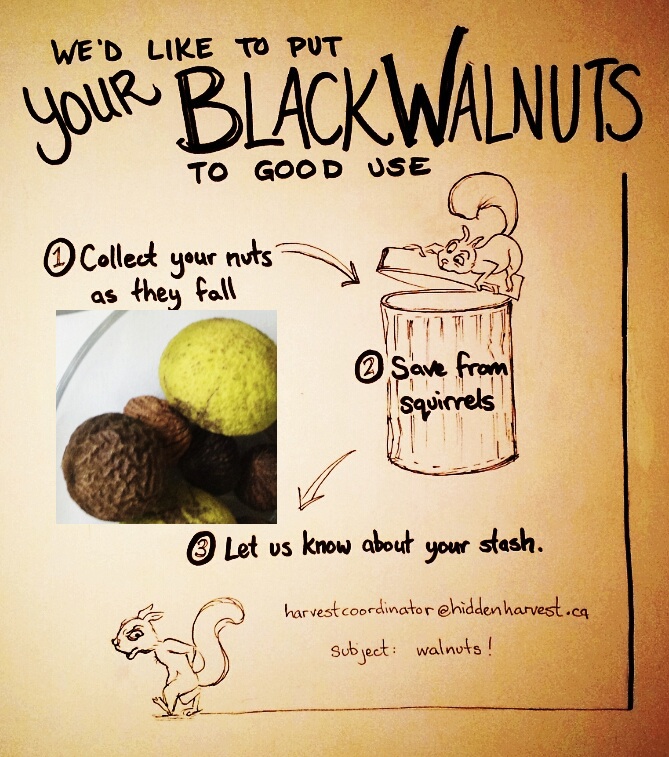 WE'D LIKE TO PUT
YOUR BLACK WALNUTS
TO GOOD USE
① Collect your nuts
as they fall
② Save from
squirrels
③ Let us know about your stash.
harvestcoordinator@hiddenharvest.ca
subject: walnuts!